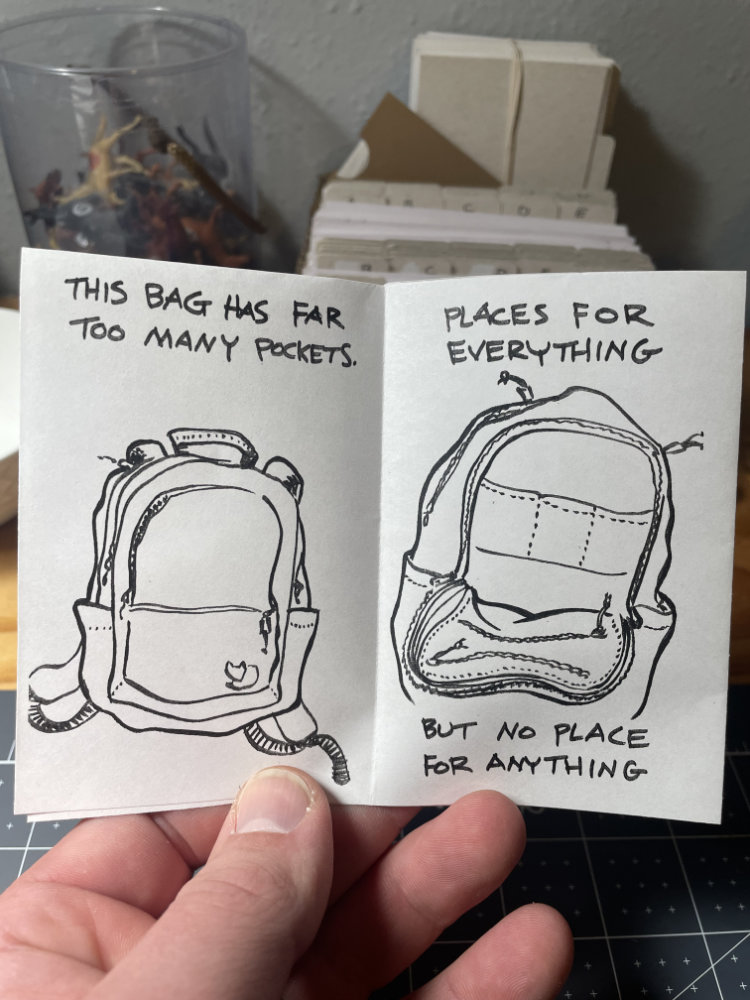 THIS BAG HAS FAR
TOO MANY POCKETS.
PLACES FOR
EVERYTHING
BUT NO PLACE
FOR ANYTHING
C D E